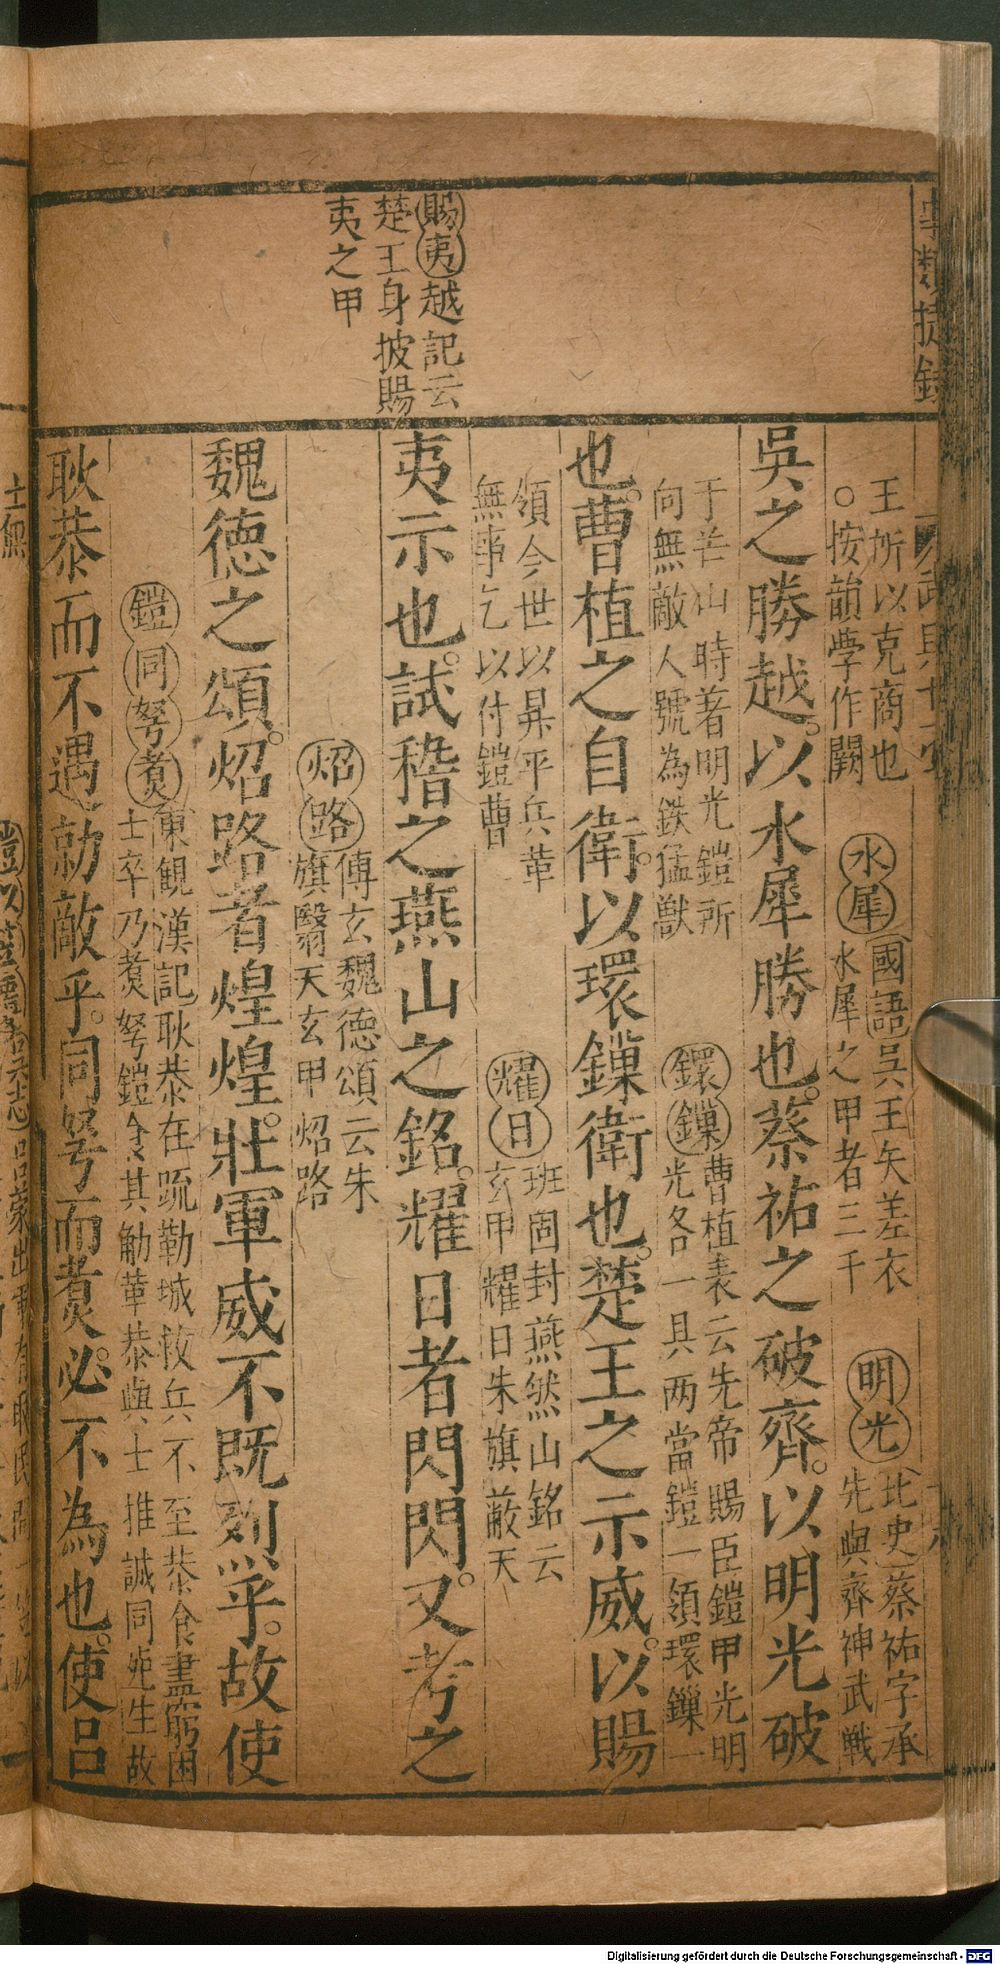 賜夷越記云
楚王身披賜
夷之甲
王所以克商也
○按韻學作闕
水犀
國語吳王矢差衣
水犀之甲者三千
明光
北史蔡祐字承
先與齊神武戦
吳之勝越。以水犀勝也。蔡祐之破齊。以明光破
于芒山時著明光鎧所
向無敵人號為鉄猛獣
鐶鏁
曹植表云先帝賜臣鎧甲光明
光各一具两當鎧一領環鏁一
也。曹植之自衛。以環鏁衛也。楚王之示威。以賜
領今世以昇平兵革
無事乞以付鎧曹
耀日
班固封燕然山銘云
玄甲耀日朱旗蔽天
夷示也。試稽之燕山之銘。耀日者閃閃。又考之
炤路
傅玄魏德頌云朱
旗翳天玄甲炤路
魏德之頌。炤路者煌煌。壯軍威不既烈乎。故使
鎧同弩煮
東観漢記耿恭在䟽勒城救兵不至恭食盡窮困
士卒乃煮弩鎧食其觔革恭與士推誠同死生故
耿恭而不遇勍敵乎。同弩而煮。必不為也。使呂
Digitalisierung gefördert durch die Deutsche Forschungsgemeinschaft - DFG